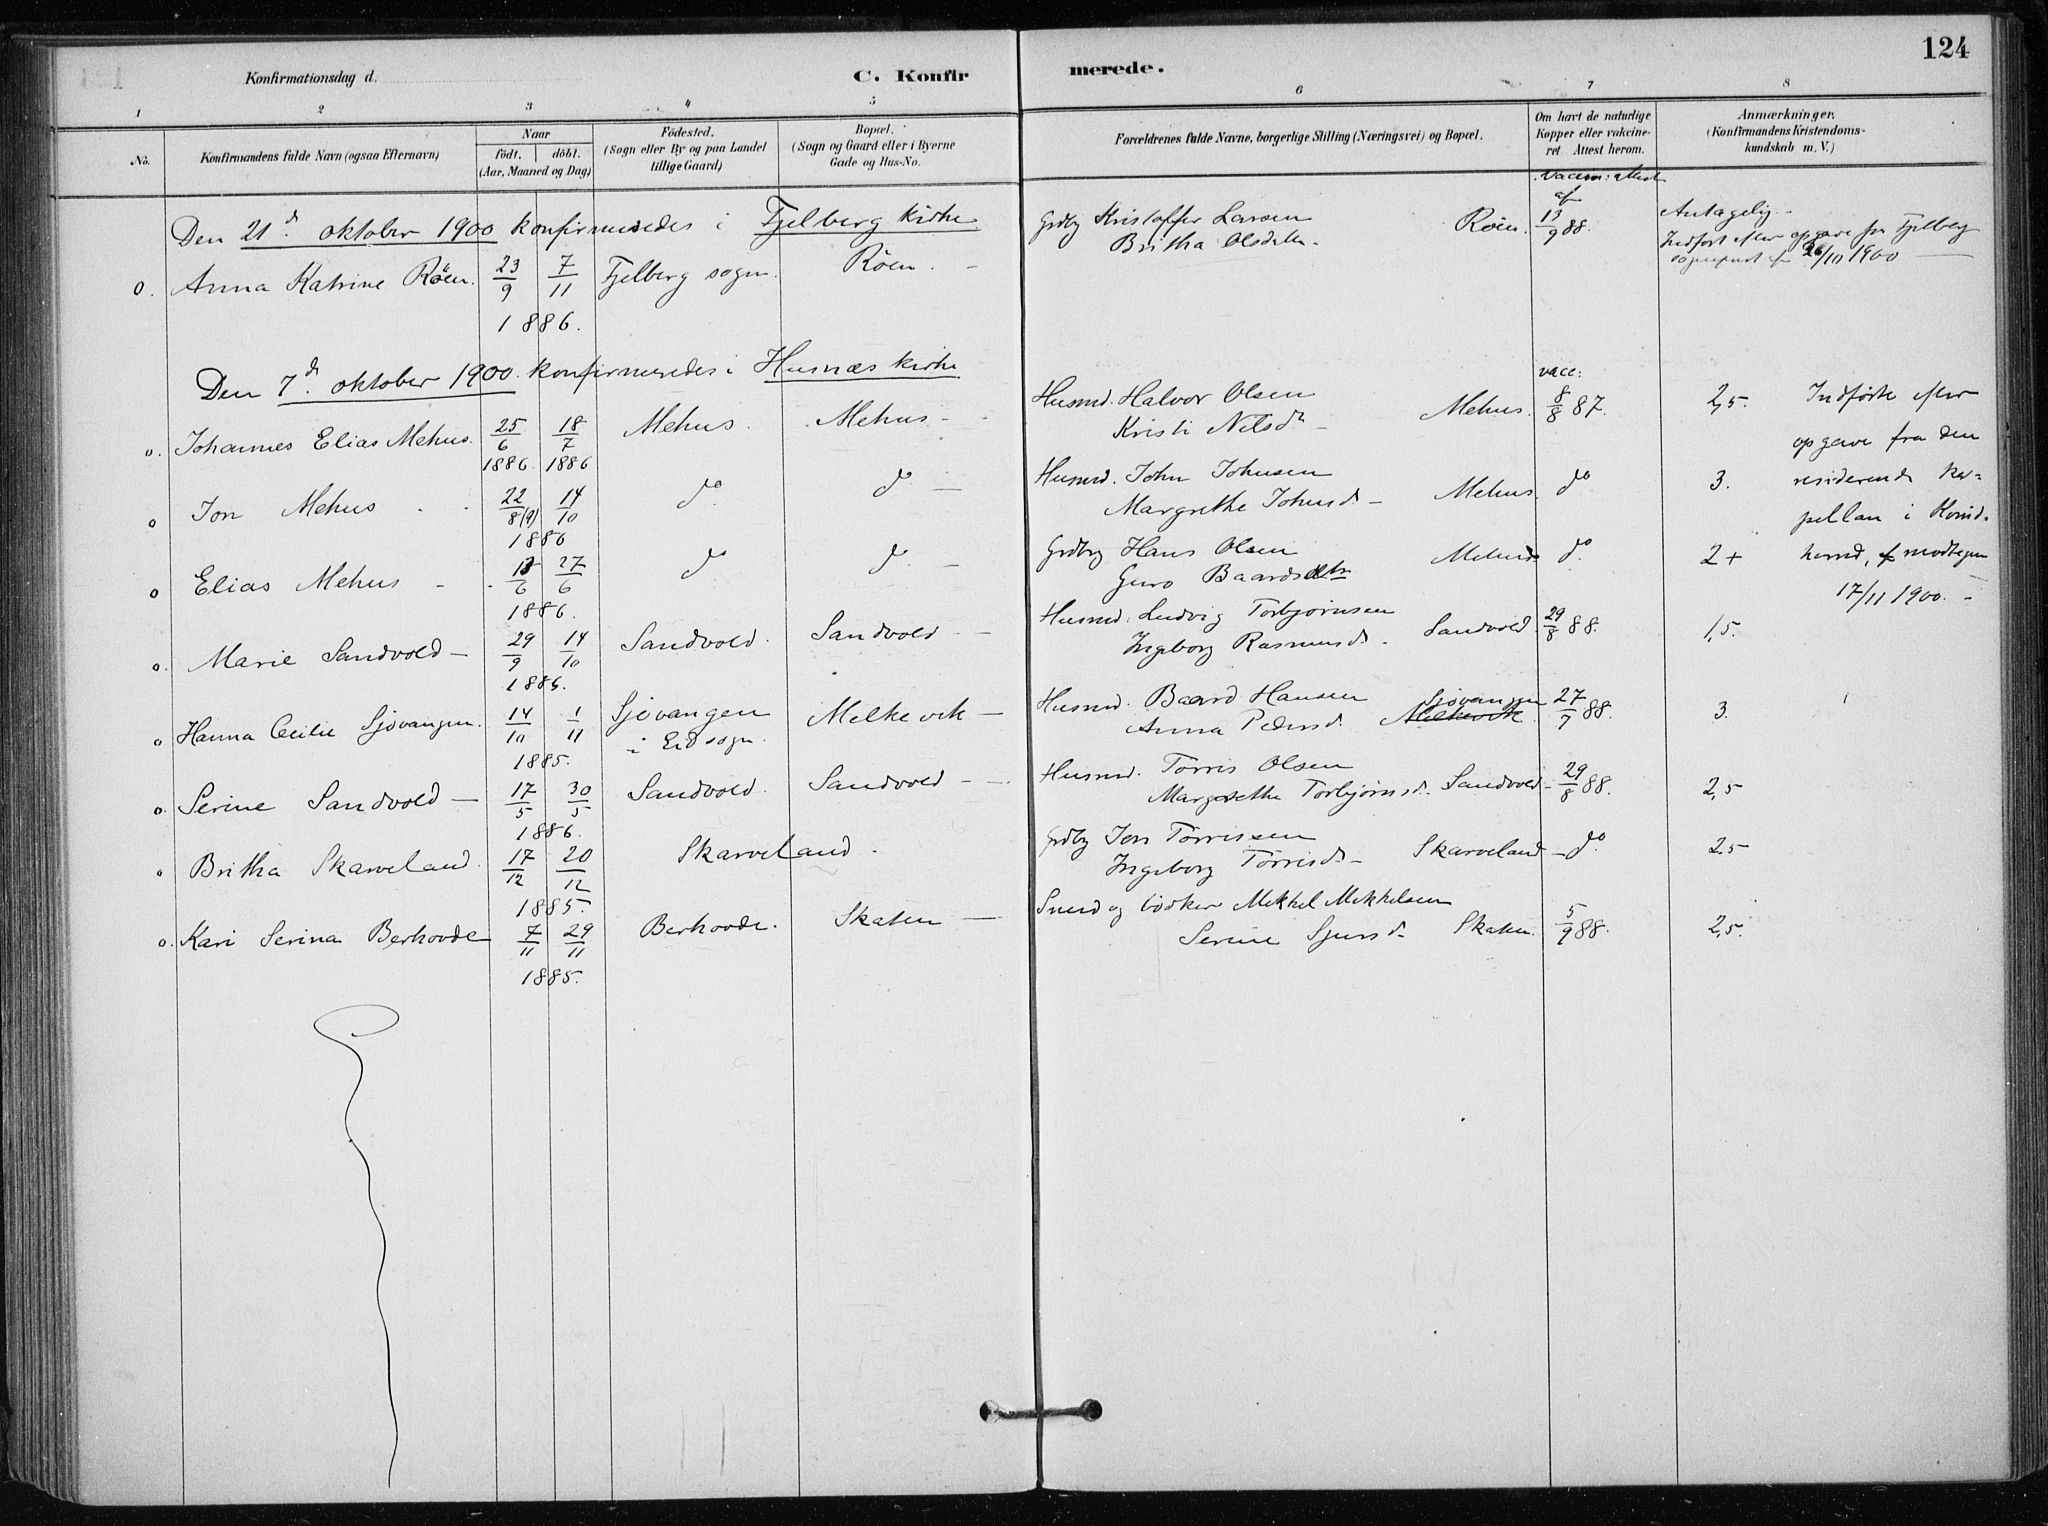 124
Konfirmationsdag d. C. Konfirmerede.
1 2 3 4 5 6 7 8
No. Konfirmandens fulde Navn (ogsaa Efternavn) Naar födt. döbt. (Aar, Maaned og Dag) Födested. (Sogn eller By og paa Landet tillige Gaard) Bopæl. (Sogn og Gaard eller i Byerne Gade og Hus-No. Forældrenes fulde Navne, borgerlige Stilling (Næringsvei) og Bopæl. Om havt de naturlige Kopper eller vakcineret. Attest herom. Anmærkninger. (Konfirmandens Kristendomskundskab m. V.)
Den 21d. oktober 1900 konfirmeredes i Fjelberg kirke
Vaccin: attest af
o. Anna Katrine Röen. 23/9 7/11 Fjelberg sogn. Röen. - Grdbg Kristoffer Larsen Röen. 13/9 88. Antagelig -
1886. Britha Olsdatter - Indført efter opgave fra Fjelberg
sogneprest 26/10 1900 -
Den 7d. oktober 1900 konfirmeredes i Husnæs kirke
vacc:
o. Johannes Elias Mehus. 25/6 18/7 Mehus. Mehus - Husmd. Halvor Olsen Mehus. 8/8 87. 2,5. Indførte efter
1886. 1886 Kristi Nilsdr - opgave fra den
o Jon Mehus 22/8(9) 14/10 do. do - Husmd. John Johnsen Mehus. do 3. residerende ka-
1886 Margrethe Johnsd. - pellan i Kvind-
o Elias Mehus - 13/6 27/6 do do - Grdbg Hans Olsen Mehus do. 2+ herred, modtagen
1886. Guro Baardsdtr 17/11 1900. -
o. Marie Sandvold - 29/9 14/10 Sandvold. Sandvold - Husmd. Ludvig Torbjørnsen Sandvold. 29/8 88. 1,5.
1886. Ingeborg Rasmusd. -
o Hanna Cecilie Sjövangen. 14/10 1/11 Sjövangen Melkevik - Husmd. Baard Hansen Sjövangen 27/7 88. 3.
1885. i Eid sogn. Anna Pedersd. Melkevik.
o. Serine Sandvold - 17/5 30/5 Sandvold. Sandvold - Husmd. Torris Olsen
1886. Margrethe Torbjørnsd. Sandvold - 29/8 88. 2,5
o Britha Skarveland. 17/12 20/12 Skarveland. Grdbg Jon Tørrissen Skarveland - do. 2,5
1885. Ingeborg Tørrisd. -
o. Kari Serina Berhovde 7/11 29/11 Berhovde. Skaten - Smed og bödker Mikkel Mikkelsen
1885. Serine Sjursd. Skaten. 5/9 88. 2,5.